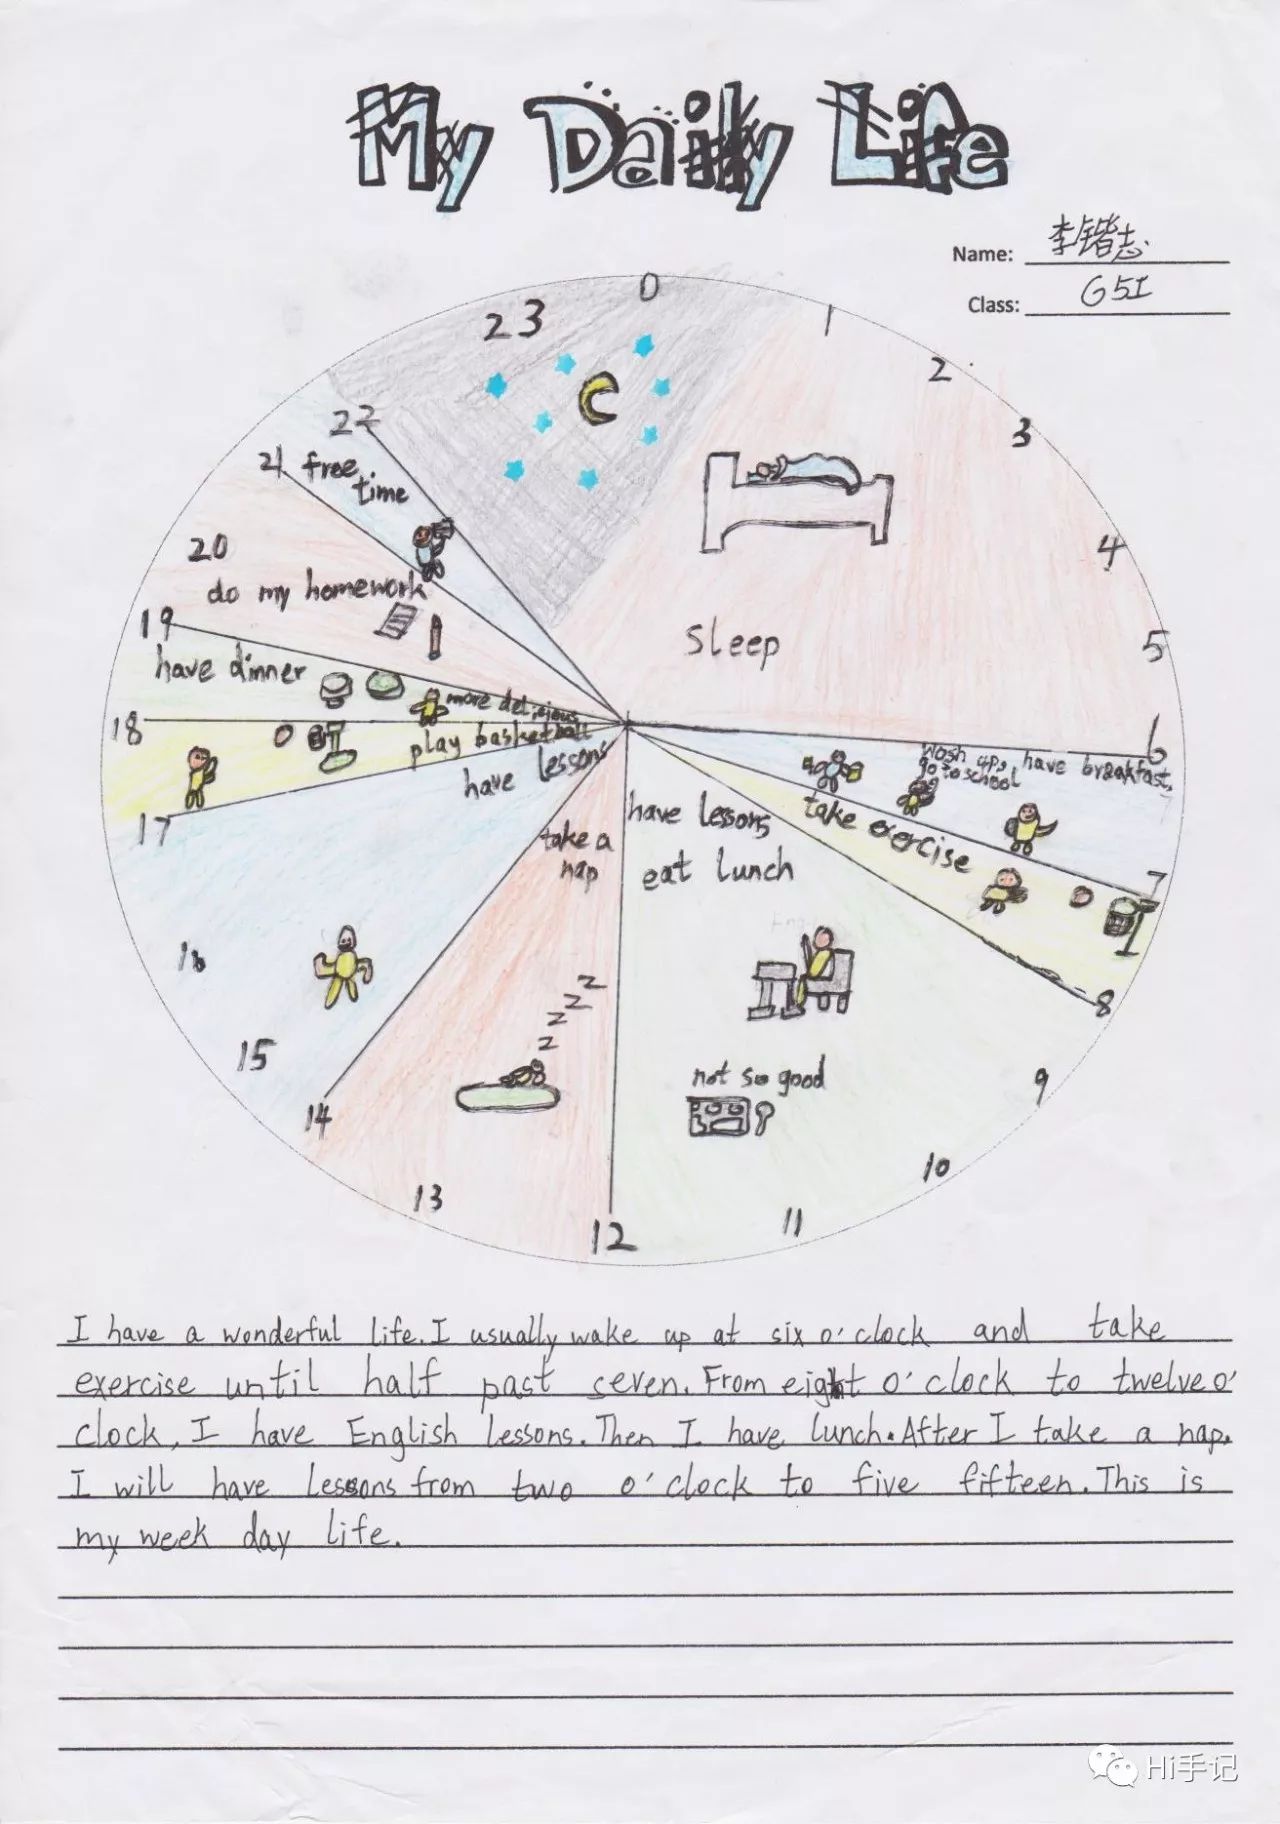 My Daily Life
Name: 李锴志
Class: G5I
0
1
2
3
4
5
6
7
8
9
10
11
12
13
14
15
16
17
18
19
20
21
22
23
sleep
wash up, have breakfast,
go to school
take exercise
have lessons
eat lunch
not so good
take a
nap
z z z z
have lessons
play basketball
more delicious
have dinner
do my homework
free
time
I have a wonderful life. I usually wake up at six o'clock and take
exercise until half past seven. From eight o'clock to twelve o'
clock, I have English lessons. Then I have lunch. After I take a nap.
I will have lessons from two o'clock to five fifteen. This is
my week day life.
Hi手记